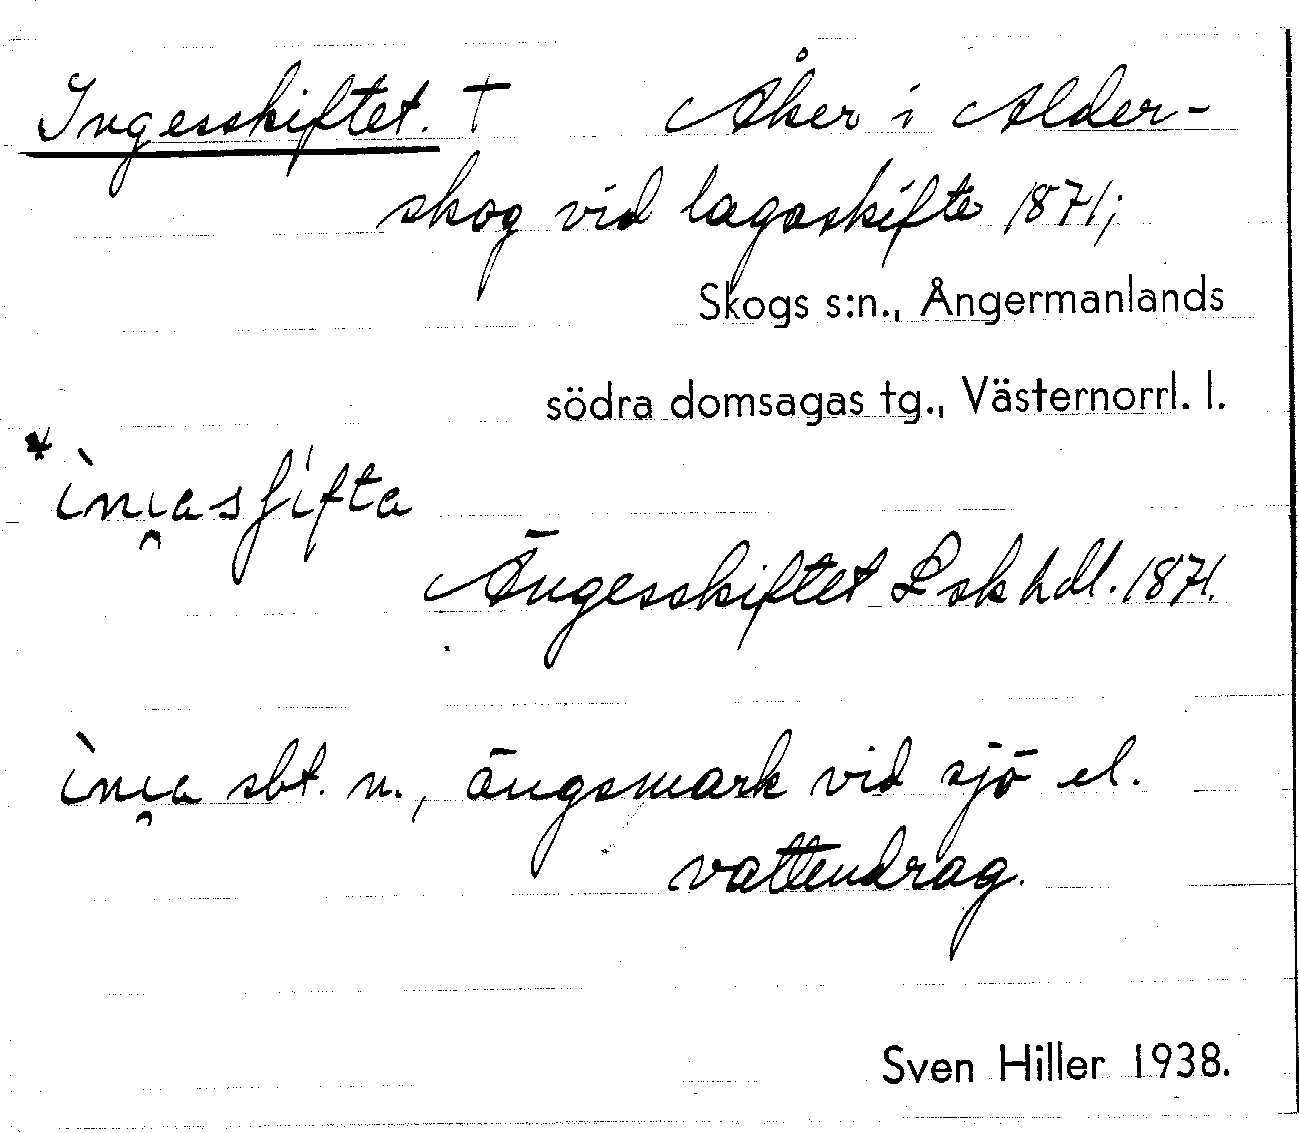 Ingesskiftet. † Åker i Alder-
skog vid lagaskifte 1871;
Skogs s:n., Ångermanlands
södra domsagas tg., Västernorrl. l.
* ìni̯asʃifta
Ängesskiftet Lskhdl. 1871.
ìni̯a sbt. n., ängsmark vid sjö el.
vattendrag.
Sven Hiller 1938.